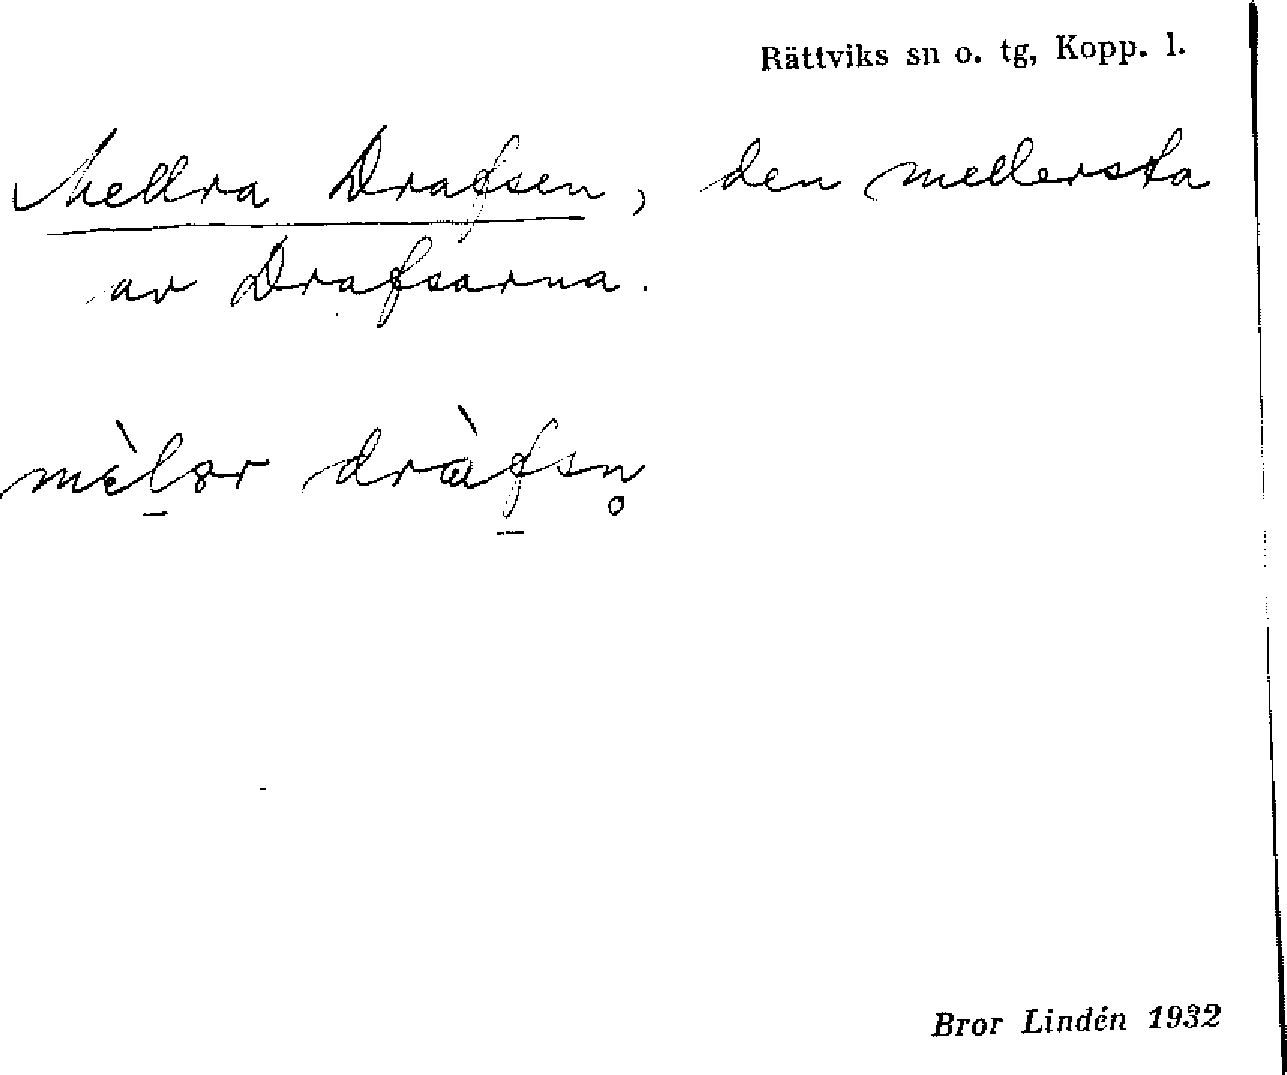 Rättviks sn o. tg, Kopp. l.
Mellra Drafsen, den mellersta
av Drafsarna.
mèl̠ər dràf̠sn̥
Bror Lindén 1932